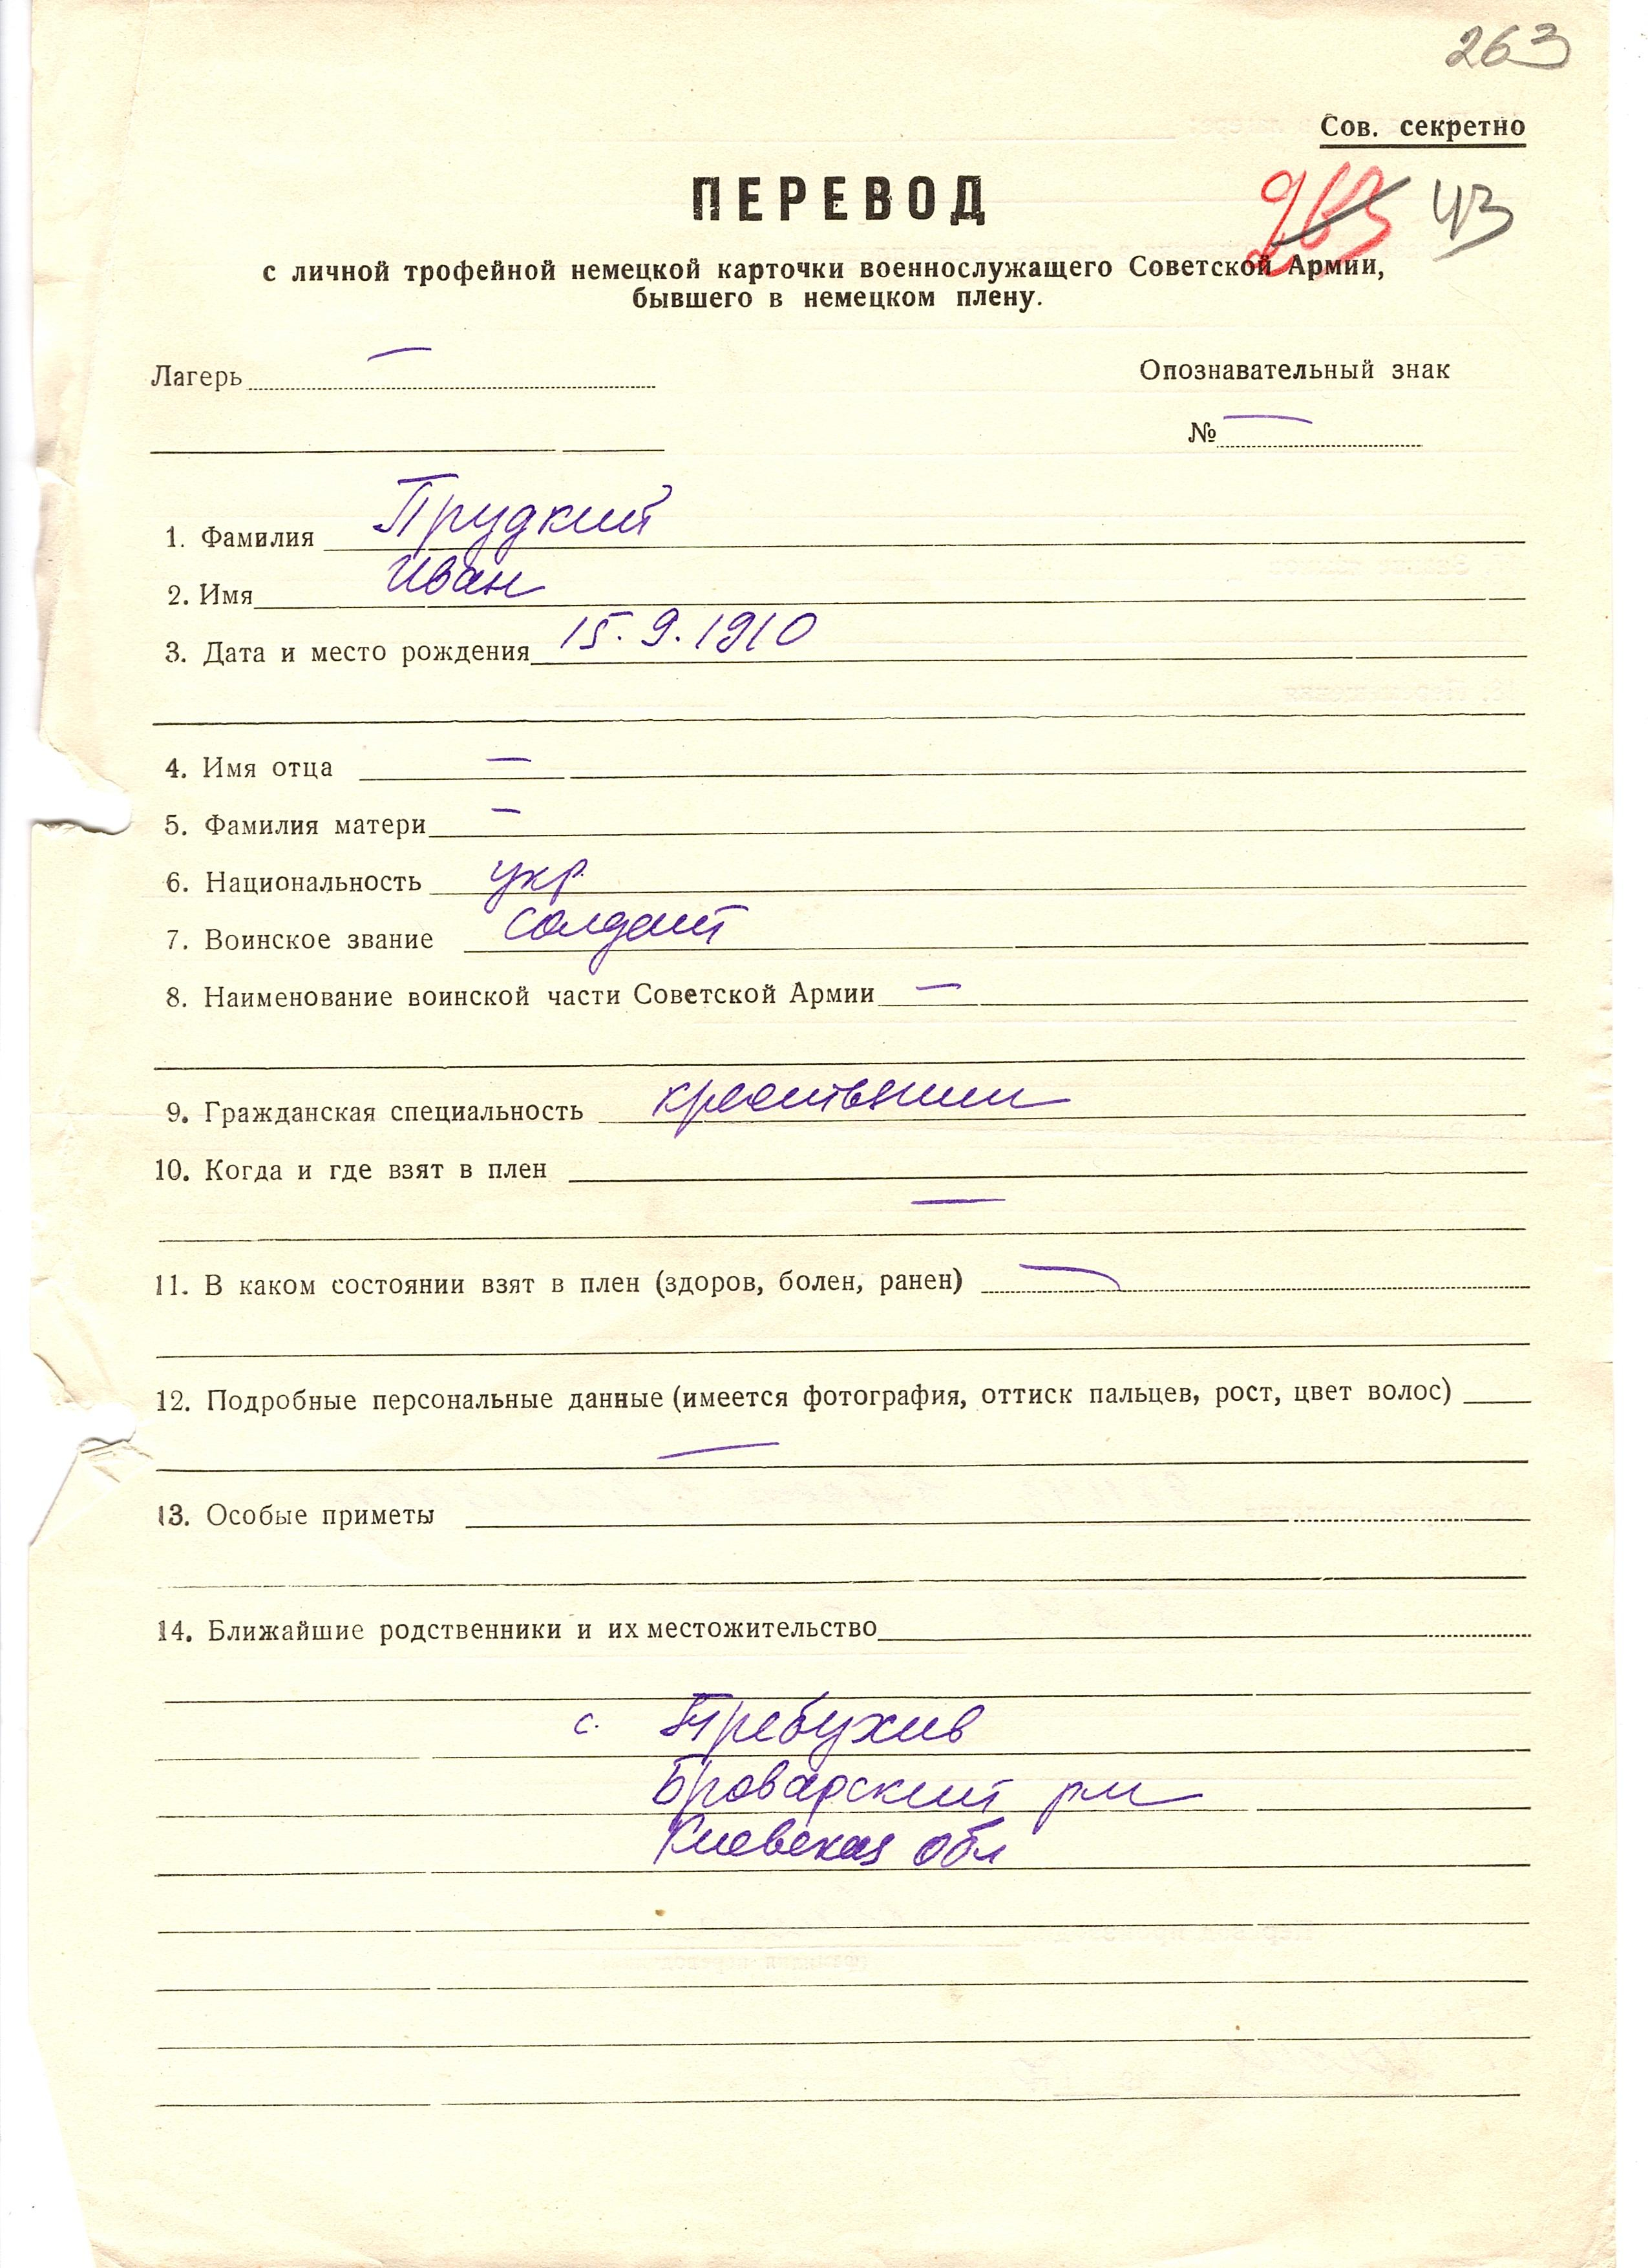 263
Сов. секретно
ПЕРЕВОД
263 43
с личной трофейной немецкой карточки военнослужащего Советской Армии,
бывшего в немецком плену.
Лагерь —
Опознавательный знак
№ —
1. Фамилия Прудкий
2. Имя Иван
3. Дата и место рождения 15.9.1910
4. Имя отца —
5. Фамилия матери —
6. Национальность укр.
7. Воинское звание солдат
8. Наименование воинской части Советской Армии —
9. Гражданская специальность крестьянин
10. Когда и где взят в плен
—
11. В каком состоянии взят в плен (здоров, болен, ранен) —
12. Подробные персональные данные (имеется фотография, оттиск пальцев, рост, цвет волос)
—
13. Особые приметы
14. Ближайшие родственники и их местожительство
с. Требухив
Броварский рн
Киевская обл